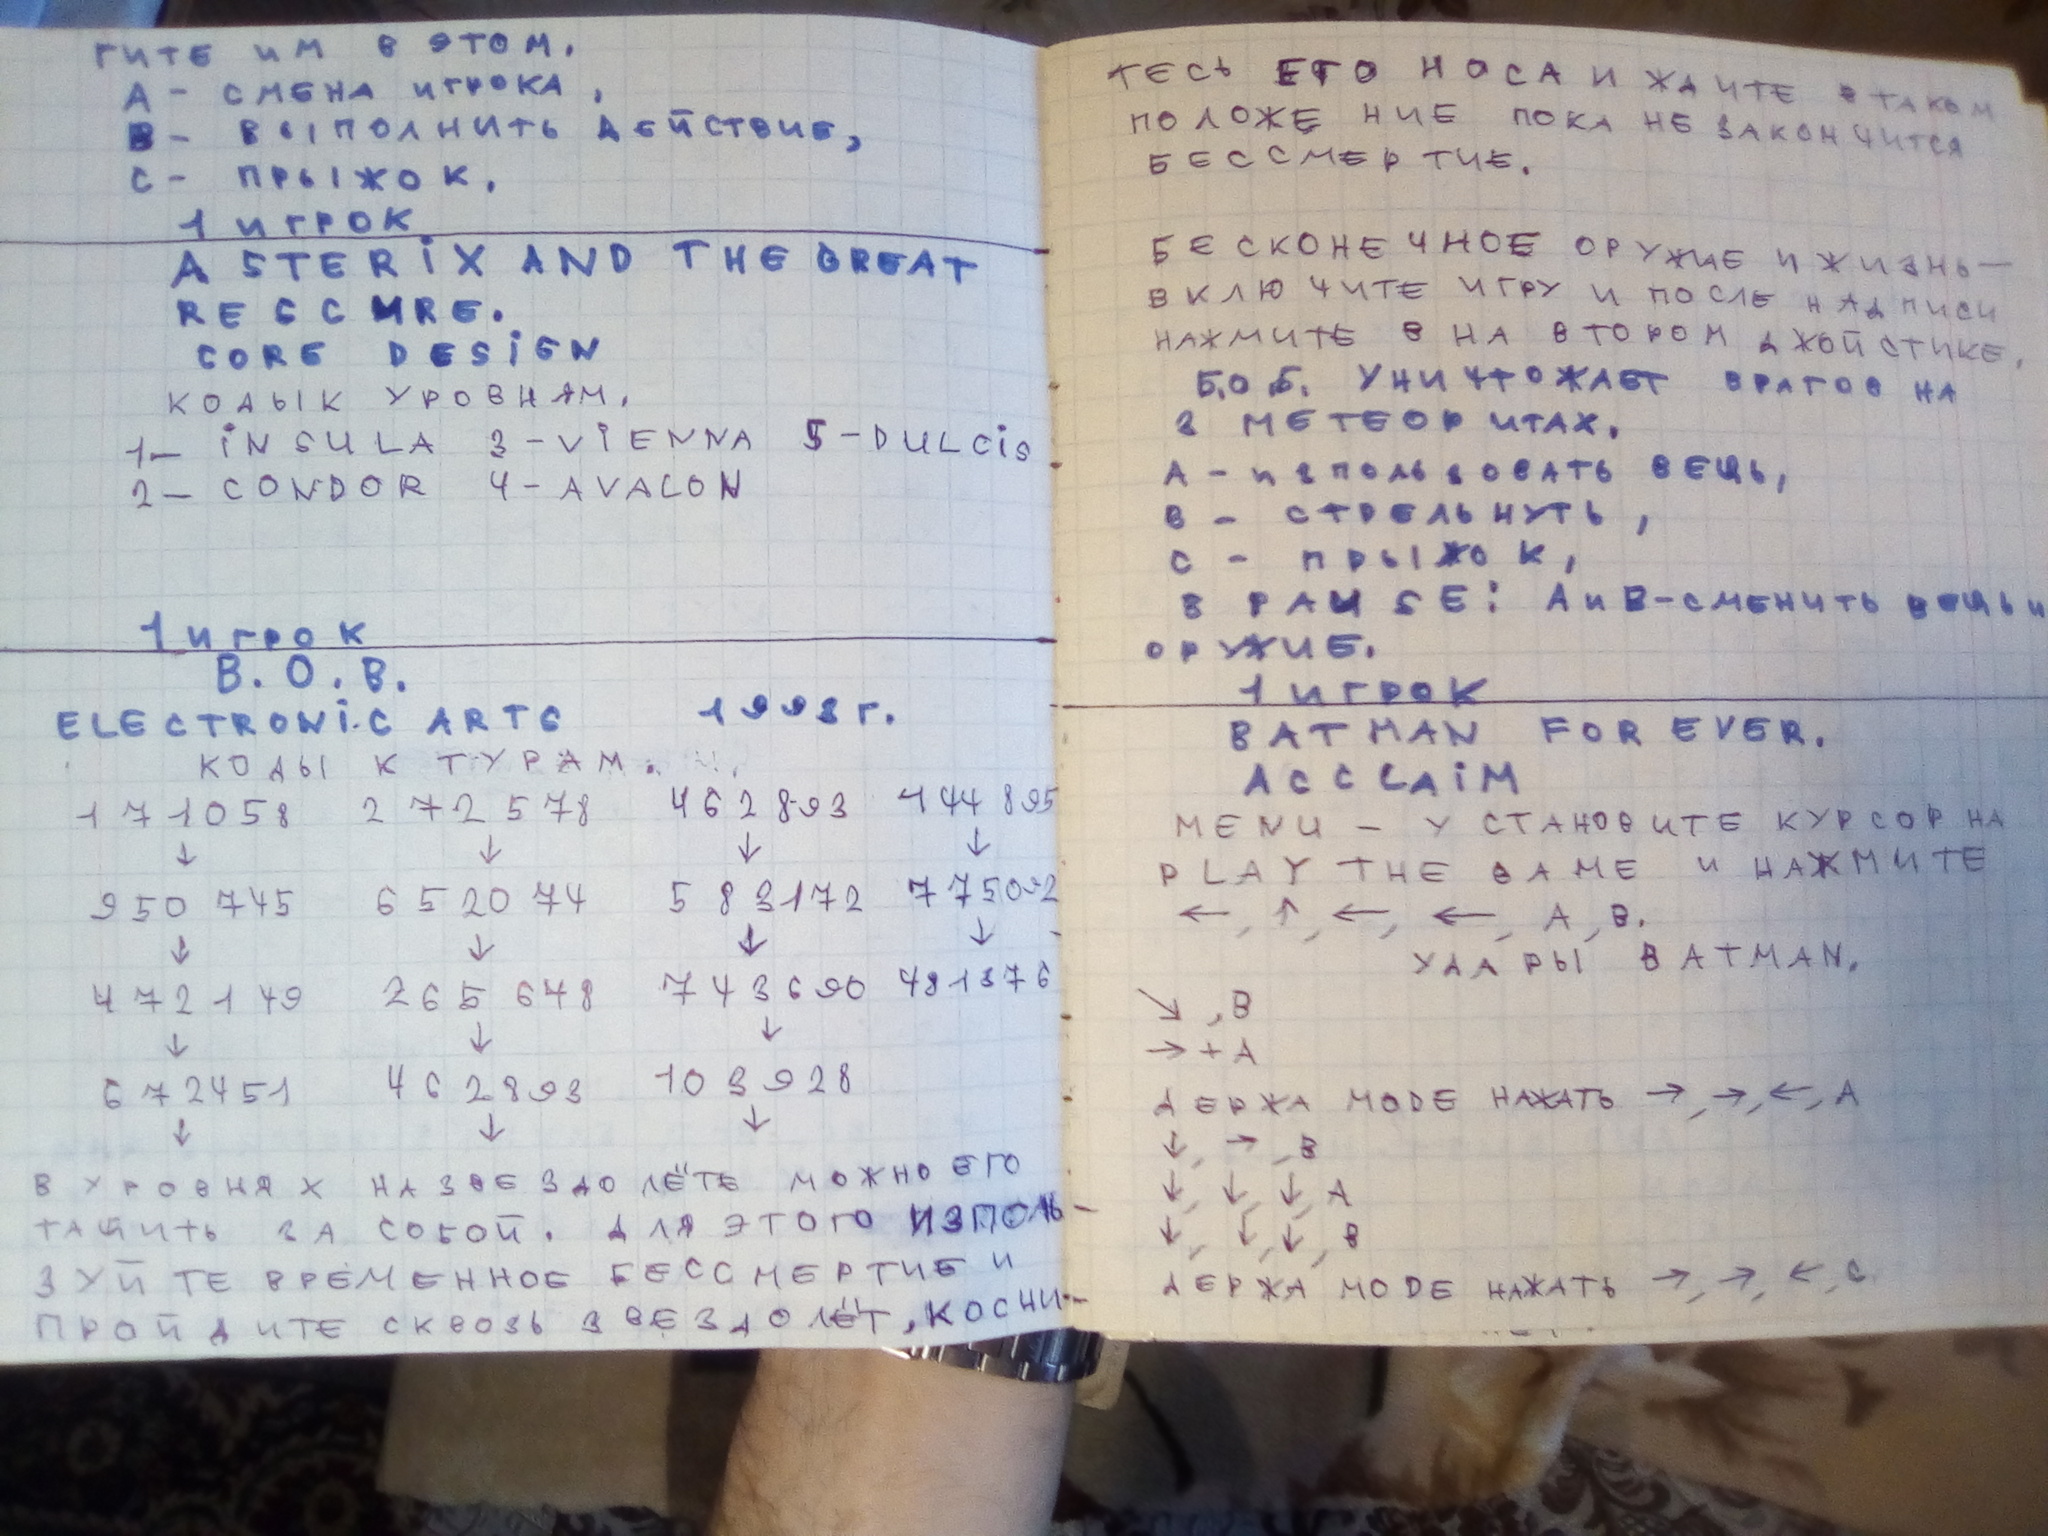 ГИТЕ ИМ В ЭТОМ.
А - СМЕНА ИГРОКА,
В - ВЫПОЛНИТЬ ДЕЙСТВИЕ,
С - ПРЫЖОК.
1 ИГРОК
ASTERIX AND THE GREAT
RESCMRE.
CORE DESIGN
КОДЫ К УРОВНЯМ.
1 - INSULA 3 - VIENNA 5 - DULCIS
2 - CONDOR 4 - AVALON
1 ИГРОК
B.O.B.
ELECTRONIC ARTS 1993 г.
КОДЫ К ТУРАМ.
171058 272578 462893 144895
↓ ↓ ↓ ↓
950745 652074 583172 775092
↓ ↓ ↓ ↓
472149 265648 743690 481376
↓ ↓ ↓
672451 462893 103928
↓ ↓ ↓
В УРОВНЯХ НА ЗВЕЗДОЛЁТЕ МОЖНО ЕГО
ТАЩИТЬ ЗА СОБОЙ. ДЛЯ ЭТОГО ИЗПОЛЬ-
ЗУЙТЕ ВРЕМЕННОЕ БЕССМЕРТИЕ И
ПРОЙДИТЕ СКВОЗЬ ЗВЕЗДОЛЁТ, КОСНИ-
ТЕСЬ ЕГО НОСА И ЖДИТЕ В ТАКОМ
ПОЛОЖЕНИЕ ПОКА НЕ ЗАКОНЧИТСЯ
БЕССМЕРТИЕ.
БЕСКОНЕЧНОЕ ОРУЖИЕ И ЖИЗНЬ —
ВКЛЮЧИТЕ ИГРУ И ПОСЛЕ НАДПИСИ
НАЖМИТЕ В НА ВТОРОМ ДЖОЙСТИКЕ.
Б.О.Б. УНИЧТОЖАЕТ ВРАГОВ НА
3 МЕТЕОРИТАХ.
А - ИЗПОЛЬЗОВАТЬ ВЕЩЬ,
В - СТРЕЛЬНУТЬ,
С - ПРЫЖОК,
В PAUSE: А и В - СМЕНИТЬ ВЕЩЬ И
ОРУЖИЕ.
1 ИГРОК
BATMAN FOREVER.
ACCLAIM
MENU - УСТАНОВИТЕ КУРСОР НА
PLAY THE GAME И НАЖМИТЕ
←, ↑, ←, ←, А, В.
УДАРЫ BATMAN.
↘, В
→ + А
ДЕРЖА MODE НАЖАТЬ →, →, ←, А
↓, →, В
↓, ↓, ↓, А
↓, ↓, ↓, В
ДЕРЖА MODE НАЖАТЬ →, →, ←, С